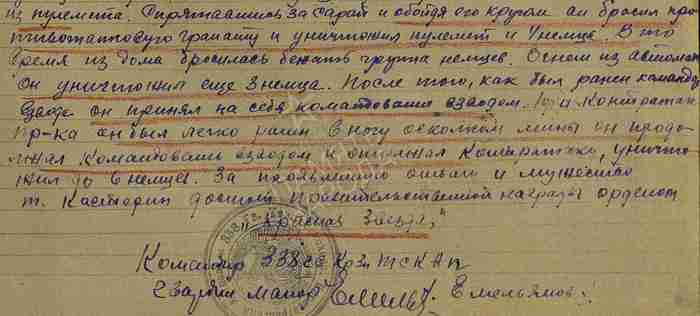 из пулемета. Спрятавшись за сарай и обойдя его кругом он бросил про
тивотанковую гранату и уничтожил пулемет и 4 немца. В это
время из дома бросилась бежать группа немцев. Огнем из автомата
он уничтожил еще 3 немца. После того, как был ранен командир
взвода он принял на себя командование взводом. При контратаке
пр-ка он был легко ранен в ногу осколком мины он продо-
лжал командовать взводом и отражал контратаки, уничто-
жил до 6 немцев. За проявленную отвагу и мужество
т. Касторин достоин правительственной награды орденом
„Красная Звезда"
Командир 338 гв
Гвардии майор Емельянов